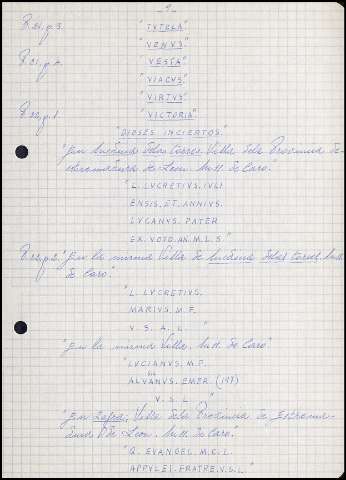 - 9 -
R.21, p.3. "TVTELA"
"VENVS"
R.21, p.4. "VESTA"
"VIACVS"
"VIRTVS"
R.22, p.1. "VICTORIA"
"DIOSES INCIERTOS."
"En Medina delas Torres, Villa dela Provincia de
estremadura de Leon. M.H. de Caro."
"L. LVCRETIVS. (VL)
ENSIS. ET. ANNIVS.
LVCANVS. PATER
EX. VOTO. AN. M.L.S."
R.22, p.2. "En la misma Villa de Medina delas Torres, M.H.
de Caro."
"L. LVCRETIVS.
MARIVS. M.F.
V. S. A. L. "
"En la misma Villa. M.H. de Caro"
"LVCIANVS. M.F.
ALVANVS. EMER. (197)
V. S. L. "
"En Zafra, Villa dela Provincia de Estrema-
dura de Leon. M.H. de Caro."
"Q. EVANGEL. M.C.L.
APPVLEI. FRATRE. V.S.L."